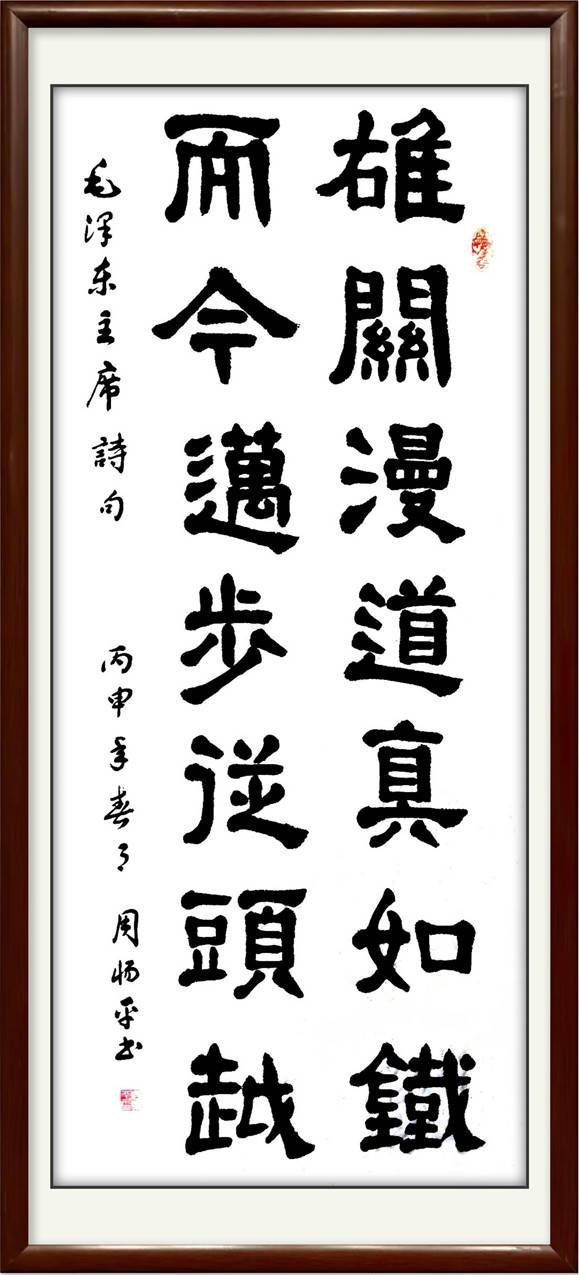 雄關漫道真如鐵
而今邁步從頭越
毛澤東主席詩句
丙申年春月 周炳平書